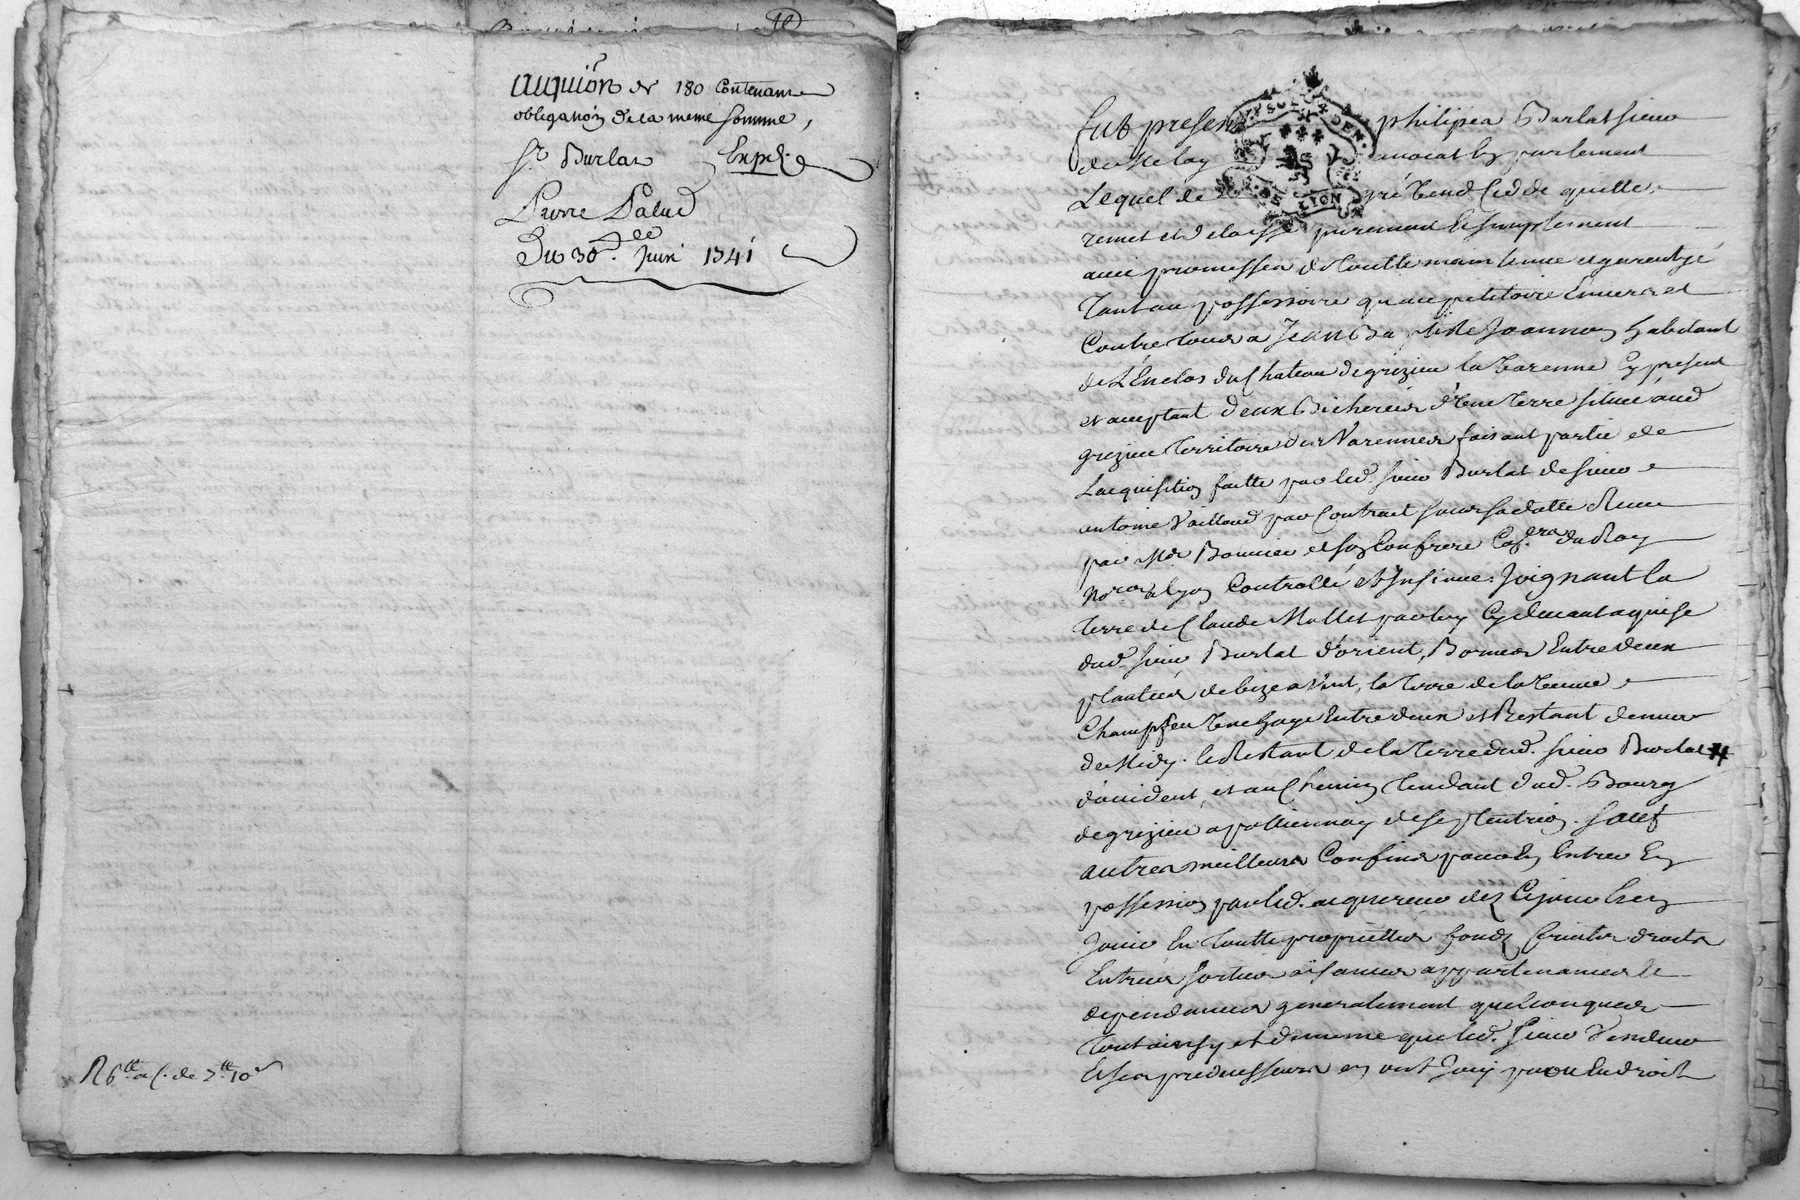 acquión de 180 Contenant
obligation de la meme somme,
Sr. Burlat Expd.
Pierre Palud
Du 30e. Juin 1741
R 6tt a C. de 7tt 10s
fut present philipes Burlat sieur
de Melay avocat En parlement
Lequel de gré vend Cede quitte
remet et delaisse purement et simplement
avec promesses de toutte maintenue et garentye
tant au possessoire qu'au petitoire Envers et
Contre tous a Jean Baptiste Joannon habitant
de L'Enclos du Chateau de grizieu la Varenne Cy present
et acceptant deux Bicherées d'une terre située aud
grizieu territoire des Varennes faisant partie de
Lacquisition faitte par led. sieur Burlat de sieur
antoine Vailland par Contract sous sa datte Receu
par Me. Bonnier et son Confrere Cosers du Roy
Nores a lyon Controllé et Insinué. Joignant la
terre de Claude Mollet par luy Cydevant aquise
dud. sieur Burlat d'orient, Bornes Entre deux
plantées de bize a Vent, la terre de la Veuve
Champfeu Une haye Entre deux et Restant d'enver
de Midy. le Restant de la terre dud. sieur Burlat #
d'occident, et au Chemin tendant dud. Bourg
de grizieu a pollionnay de septentrion. Sauf
autres meilleurs Confins pour En Entrer En
possession par led. acquereur dez Cejourd'huy
Jouir En toutte proprietté fondz fruits droits
Entrées sorties aisances appartenances et
dependances generalement quelconques
tout ainsy et de meme que led. sieur Vendeur
Et ses predecesseurs en ont Jouy pu ou En droit
YPSOIX DEN
DE LYON